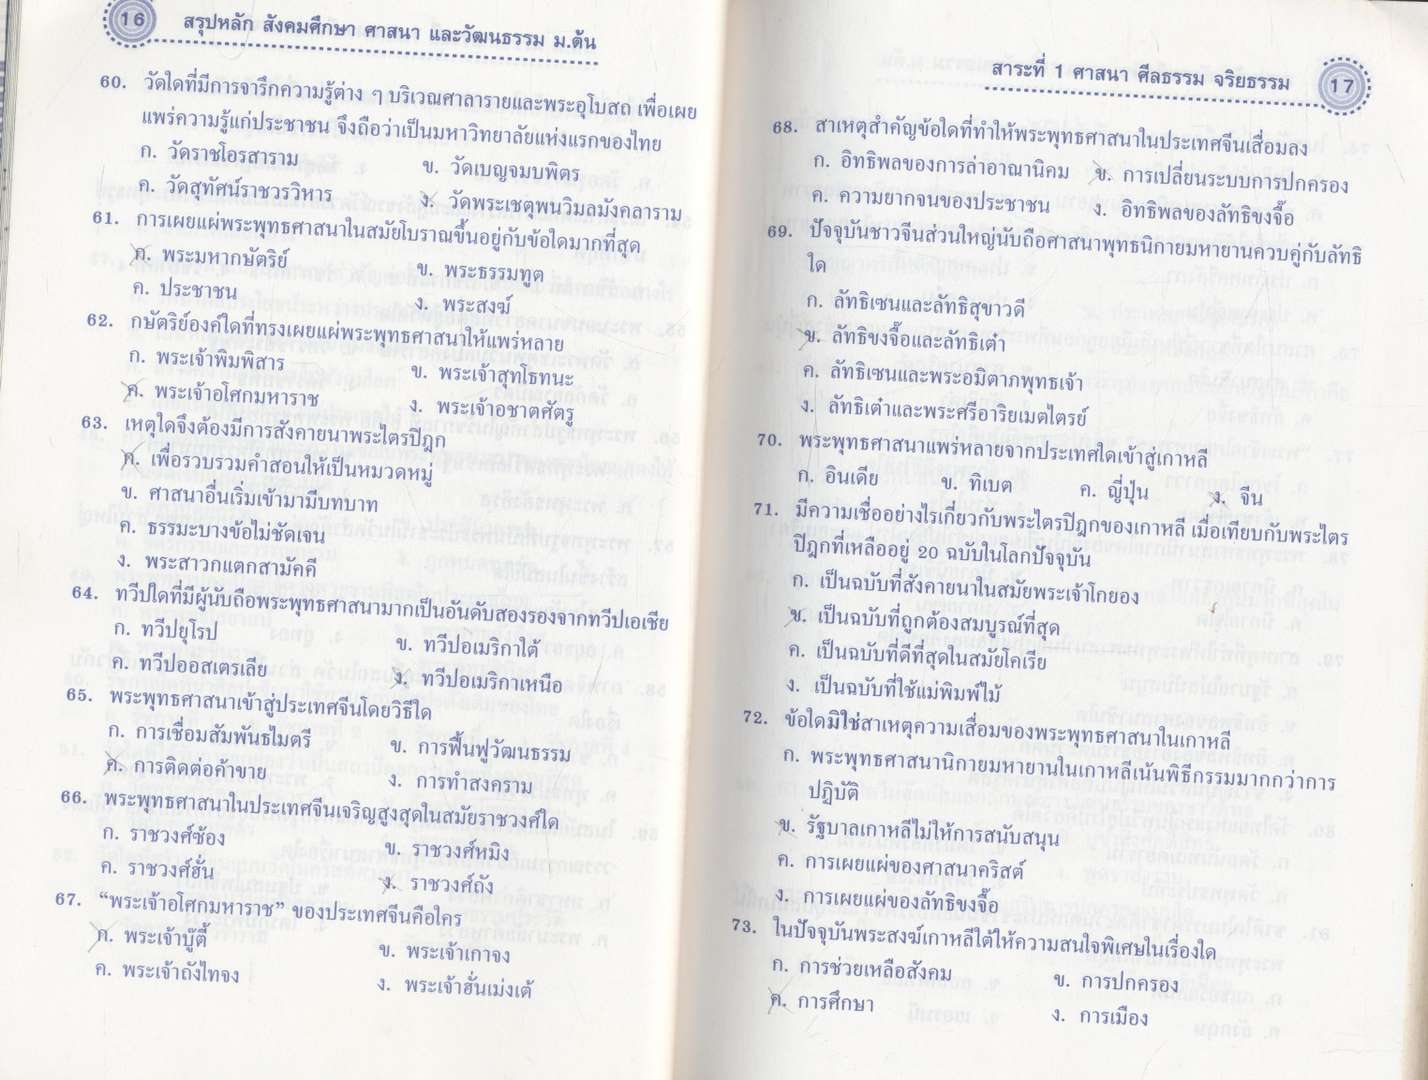 16 สรุปหลัก สังคมศึกษา ศาสนา และวัฒนธรรม ม.ต้น
60. วัดใดที่มีการจารึกความรู้ต่าง ๆ บริเวณศาลารายและพระอุโบสถ เพื่อเผย
แพร่ความรู้แก่ประชาชน จึงถือว่าเป็นมหาวิทยาลัยแห่งแรกของไทย
ก. วัดราชโอรสาราม ข. วัดเบญจมบพิตร
ค. วัดสุทัศน์ราชวรวิหาร ง. วัดพระเชตุพนวิมลมังคลาราม
61. การเผยแผ่พระพุทธศาสนาในสมัยโบราณขึ้นอยู่กับข้อใดมากที่สุด
ก. พระมหากษัตริย์ ข. พระธรรมทูต
ค. ประชาชน ง. พระสงฆ์
62. กษัตริย์องค์ใดที่ทรงเผยแผ่พระพุทธศาสนาให้แพร่หลาย
ก. พระเจ้าพิมพิสาร ข. พระเจ้าสุทโธทนะ
ค. พระเจ้าอโศกมหาราช ง. พระเจ้าอชาตศัตรู
63. เหตุใดจึงต้องมีการสังคายนาพระไตรปิฎก
ก. เพื่อรวบรวมคำสอนให้เป็นหมวดหมู่
ข. ศาสนาอื่นเริ่มเข้ามามีบทบาท
ค. ธรรมะบางข้อไม่ชัดเจน
ง. พระสาวกแตกสามัคคี
64. ทวีปใดที่มีผู้นับถือพระพุทธศาสนามากเป็นอันดับสองรองจากทวีปเอเชีย
ก. ทวีปยุโรป ข. ทวีปอเมริกาใต้
ค. ทวีปออสเตรเลีย ง. ทวีปอเมริกาเหนือ
65. พระพุทธศาสนาเข้าสู่ประเทศจีนโดยวิธีใด
ก. การเชื่อมสัมพันธไมตรี ข. การฟื้นฟูวัฒนธรรม
ค. การติดต่อค้าขาย ง. การทำสงคราม
66. พระพุทธศาสนาในประเทศจีนเจริญสูงสุดในสมัยราชวงศ์ใด
ก. ราชวงศ์ซ้อง ข. ราชวงศ์หมิง
ค. ราชวงศ์ฮั่น ง. ราชวงศ์ถัง
67. “พระเจ้าอโศกมหาราช” ของประเทศจีนคือใคร
ก. พระเจ้าบู๊ตี้ ข. พระเจ้าเกาจง
ค. พระเจ้าถังไทจง ง. พระเจ้าฮั่นเม่งเต้
สาระที่ 1 ศาสนา ศีลธรรม จริยธรรม 17
68. สาเหตุสำคัญข้อใดที่ทำให้พระพุทธศาสนาในประเทศจีนเสื่อมลง
ก. อิทธิพลของการล่าอาณานิคม ข. การเปลี่ยนระบบการปกครอง
ค. ความยากจนของประชาชน ง. อิทธิพลของลัทธิขงจื๊อ
69. ปัจจุบันชาวจีนส่วนใหญ่นับถือศาสนาพุทธนิกายมหายานควบคู่กับลัทธิ
ใด
ก. ลัทธิเซนและลัทธิสุขาวดี
ข. ลัทธิขงจื๊อและลัทธิเต๋า
ค. ลัทธิเซนและพระอมิตาภพุทธเจ้า
ง. ลัทธิเต๋าและพระศรีอาริยเมตไตรย์
70. พระพุทธศาสนาแพร่หลายจากประเทศใดเข้าสู่เกาหลี
ก. อินเดีย ข. ทิเบต ค. ญี่ปุ่น ง. จีน
71. มีความเชื่ออย่างไรเกี่ยวกับพระไตรปิฎกของเกาหลี เมื่อเทียบกับพระไตร
ปิฎกที่เหลืออยู่ 20 ฉบับในโลกปัจจุบัน
ก. เป็นฉบับที่สังคายนาในสมัยพระเจ้าโกยอง
ข. เป็นฉบับที่ถูกต้องสมบูรณ์ที่สุด
ค. เป็นฉบับที่ดีที่สุดในสมัยโคเรีย
ง. เป็นฉบับที่ใช้แม่พิมพ์ไม้
72. ข้อใดมิใช่สาเหตุความเสื่อมของพระพุทธศาสนาในเกาหลี
ก. พระพุทธศาสนานิกายมหายานในเกาหลีเน้นพิธีกรรมมากกว่าการ
ปฏิบัติ
ข. รัฐบาลเกาหลีไม่ให้การสนับสนุน
ค. การเผยแผ่ของศาสนาคริสต์
ง. การเผยแผ่ของลัทธิขงจื๊อ
73. ในปัจจุบันพระสงฆ์เกาหลีใต้ให้ความสนใจพิเศษในเรื่องใด
ก. การช่วยเหลือสังคม ข. การปกครอง
ค. การศึกษา ง. การเมือง